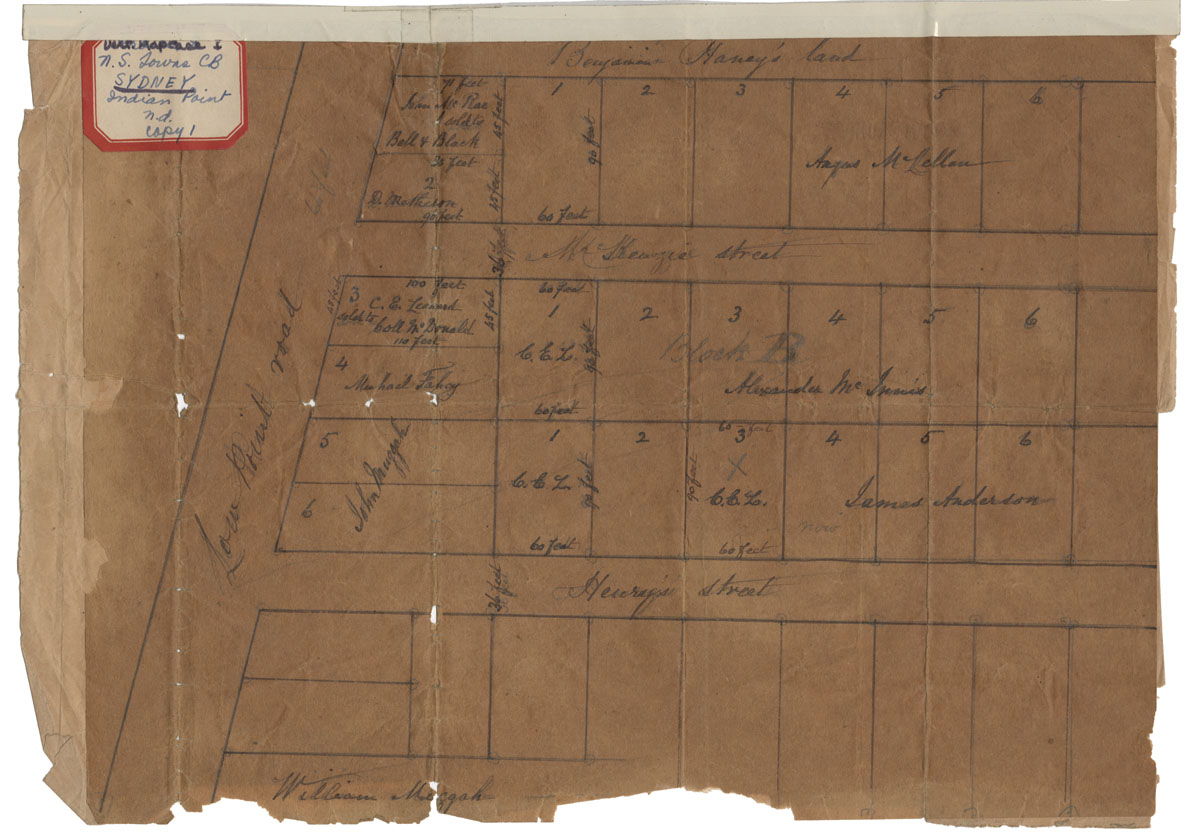 N.S. Towns CB
SYDNEY
Indian Point
n.d.
Copy 1
Benjamin Haney's land
71 feet
John McRae
sold to
Bell & Black
90 feet
2
D. Matheson
90 feet
45 feet
45 feet
1 2 3 4 5 6
90 feet
60 feet
Angus McLellan
McKenzie street
36 feet
Low Point road
100 feet
3 C. E. Leonard
sold to Coll McDonald
110 feet
45 feet
45 feet
4
Michael Fahey
60 feet
1 2 3 4 5 6
C.E.L.
90 feet
60 feet
Block B
Alexander McInnis
5
6
John Muggah
1 2 3 4 5 6
60 feet
C.E.L.
90 feet
90 feet
X
C.E.L.
James Anderson
now
60 feet
60 feet
36 feet
Henry's street
William Muggah